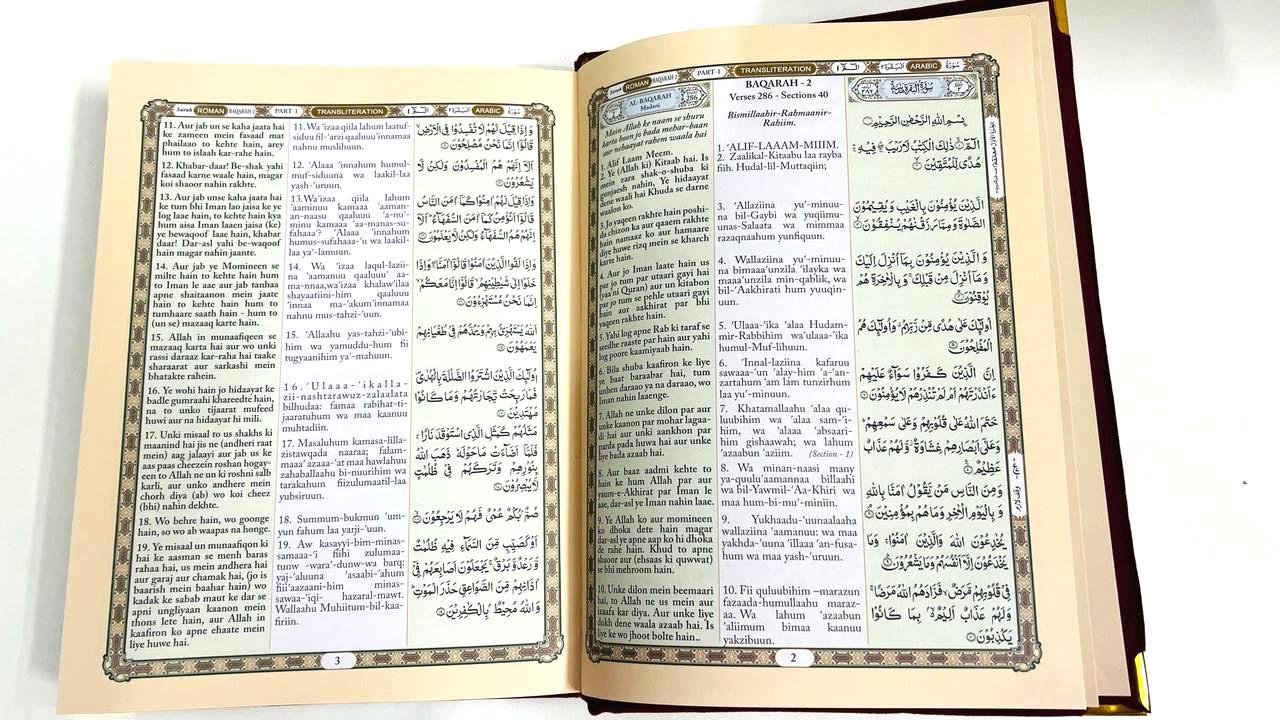 Surah ROMAN BAQARAH-2 PART-1 TRANSLITERATION الٓمّٓ ١ البقرة ٢ ARABIC سورة
AL-BAQARAH
Madani
286
Main Allah ke naam se shuru
karta hoon jo bada mehar-baan
aur nehaayat rahem waala hai
1. Alif Laam Meem.
2. Ye (Allah ki) Kitaab hai. Is
mein zara shak-o-shuba ki
gunjaesh nahin, Ye hidaayat
dene waali hai Khuda se darne
waalon ko.
3. Jo yaqeen rakhte hain poshi-
da chizon ka aur qaem rakhte
hain namaaz ko aur hamaare
diye huwe rizq mein se kharch
karte hain.
4. Aur jo Iman laate hain us
par jo tum par utaari gayi hai
(yaa ni Quran) aur un kitabon
par jo tum se pehle utaari gayi
hain aur aakhirat par bhi
yaqeen rakhte hain.
5. Yahi log apne Rab ki taraf se
sedhe raaste par hain aur yahi
log poore kaamiyaab hain.
6. Bila shuba kaafiron ke liye
ye baat baraabar hai, tum
unhen daraao ya na daraao, wo
Iman nahin laaenge.
7. Allah ne unke dilon par aur
unke kaanon par mohar lagaa-
di hai aur unki aankhon par
parda pada huwa hai aur unke
liye bada azaab hai.
8. Aur baaz aadmi kehte to
hain ke hum Allah par aur
yaum-e-Akhirat par Iman le
aae, dar-asl ye Iman nahin laae.
9. Ye Allah ko aur momineen
ko dhoka dete hain magar
dar-asl ye apne aap ko hi dhoka
de rahé hain. Khud to apne
shaoor aur (ehsaas ki quwwat)
se bhi mehroom hain.
10. Unke dilon mein beemaari
hai, to Allah ne us mein aur
izaafa kar diya. Aur unke liye
dukh dene waala azaab hai. Is
liye ke wo jhoot bolte hain..
BAQARAH - 2
Verses 286 - Sections 40
Bismillaahir-Rahmaanir-
Rahiim.
1. 'ALIF-LAAAM-MIIIM.
2. Zaalikal-Kitaabu laa rayba
fiih. Hudal-lil-Muttaqiin;
3. 'Allaziina yu'-minuu-
na bil-Gaybi wa yuqiimu-
unas-Salaata wa mimmaa
razaqnaahum yunfiquun.
4. Wallaziina yu'-minuu-
na bimaaa'unzila 'ilayka wa
maaa'unzila min-qablik, wa
bil-'Aakhirati hum yuuqin-
uun.
5. 'Ulaaa-'ika 'alaa Hudam-
mir-Rabbihim wa'ulaaa-'ika
humul-Muf-lihuun.
6. 'Innal-laziina kafaruu
sawaaa-'un 'alay-him 'a-'an-
zartahum 'am lám tunzirhum
laa yu'-minuun.
7. Khatamallaahu 'alaa qu-
luubihim wa 'alaa sam-'i-
him, wa 'alaaa 'absaari-
him gishaawah; wa lahum
'azaabun 'aziim. (Section - 1)
8. Wa minan-naasi many
ya-quulu'aamannaa billaahi
wa bil-Yawmil-'Aa-Khiri wa
maa hum-bi-mu'-miniin.
9. Yukhaadu-'uunaalaaha
wallaziina 'aamanuu: wa maa
yakhda-'uuna 'illaaa 'an-fusa-
hum wa maa yash-'uruun.
10. Fii quluubihim –marazun
fazaada-humullaahu maraz-
aa. Wa lahum 'azaabun
'aliimum bimaa kaanuu
yakzibuun.
سورة البقرة مدنية
بِسْمِ اللهِ الرَّحْمٰنِ الرَّحِيْمِ
الٓمّٓ ذٰلِكَ الْكِتٰبُ لَارَيْبَ فِيْهِ
هُدًى لِّلْمُتَّقِيْنَ
الَّذِيْنَ يُؤْمِنُوْنَ بِالْغَيْبِ وَيُقِيْمُوْنَ
الصَّلٰوةَ وَمِمَّا رَزَقْنٰهُمْ يُنْفِقُوْنَ
وَ الَّذِيْنَ يُؤْمِنُوْنَ بِمَآ اُنْزِلَ اِلَيْكَ
وَمَآ اُنْزِلَ مِنْ قَبْلِكَ وَبِالْاٰخِرَةِ هُمْ
يُوْقِنُوْنَ
اُولٰٓئِكَ عَلٰى هُدًى مِّنْ رَّبِّهِمْ وَاُولٰٓئِكَ هُمُ
الْمُفْلِحُوْنَ
اِنَّ الَّذِيْنَ كَفَرُوْا سَوَآءٌ عَلَيْهِمْ
ءَاَنْذَرْتَهُمْ اَمْ لَمْ تُنْذِرْهُمْ لَايُؤْمِنُوْنَ
خَتَمَ اللهُ عَلٰى قُلُوْبِهِمْ وَعَلٰى سَمْعِهِمْ
وَعَلٰٓى اَبْصَارِهِمْ غِشَاوَةٌ وَّلَهُمْ عَذَابٌ
عَظِيْمٌ
وَمِنَ النَّاسِ مَنْ يَّقُوْلُ اٰمَنَّا بِاللهِ
وَ بِالْيَوْمِ الْاٰخِرِ وَمَاهُمْ بِمُؤْمِنِيْنَ
يُخٰدِعُوْنَ اللهَ وَالَّذِيْنَ اٰمَنُوْا وَمَا
يَخْدَعُوْنَ اِلَّآ اَنْفُسَهُمْ وَمَا يَشْعُرُوْنَ
فِيْ قُلُوْبِهِمْ مَّرَضٌ فَزَادَهُمُ اللهُ مَرَضًا
وَلَهُمْ عَذَابٌ اَلِيْمٌ بِمَا كَانُوْا
يَكْذِبُوْنَ
2
Surah ROMAN BAQARAH-2 PART-1 TRANSLITERATION الٓمّٓ ١ البقرة ٢ ARABIC سورة
11. Aur jab un se kaha jaata hai
ke zameen mein fasad mat
phailaao to kehte hain, arey
hum to islaah kar-rahe hain.
12. Khabar-daar! Be-shak yahi
fasaad karne waale hain, magar
koi shaoor nahin rakhte.
13. Aur jab unse kaha jaata hai
ke tum bhi Iman lao jaisa ke ye
log laae hain, to kehte hain kya
hum aisa Iman laaen jaisa (ke)
ye bewaqoof laae hain, khabar
daar! Dar-asl yahi be-waqoof
hain magar nahin jaante.
14. Aur jab ye Momineen se
milte hain to kehte hain hum
to Iman le aae aur jab tanhaa
apne shaitaanon mein jaate
hain to kehte hain hum to
tumhaare saath hain - hum to
(un se) mazaaq karte hain.
15. Allah in munaafiqeen se
mazaaq karta hai aur wo unki
rassi daraaz kar-raha hai taake
sharaarat aur sarkashi mein
bhatakte rahein.
16. Ye wohi hain jo hidaayat ke
badle gumraahi khareedte hain,
na to unko tijaarat mufeed
huwi aur na hidaayat hi mili.
17. Unki misaal to us shakhs ki
maanind hai jis ne (andheri raat
mein) aag jalaayi aur jab us ke
aas paas cheezein roshan hogay-
een to Allah ne un ki roshni salb
karli, aur unko andhere mein
chorh diya (ab) wo koi cheez
(bhi) nahin dekhte.
18. Wo behre hain, wo goonge
hain, so wo ab waapas na honge.
19. Ye misaal un munaafiqon ki
hai ke aasman se menh baras
rahaa hai, us mein andhera hai
aur garaj aur chamak hai, (jo is
baarish mein baahar hai) wo
kadak ke sabab maut ke dar se
apni ungliyaan kaanon mein
thons lete hain, aur Allah in
kaafiron ko apne ehaate mein
liye huwe hai.
11. Wa'izaa qiila lahum laatuf-
siduu fil-'arzi qaaluuu'innamaa
nahnu muslihuun.
12. 'Alaaa 'innahum humul-
muf-siduuna wa laakil-laa
yash-'uruun.
13.Wa'izaa qiila lahum
'aaminuu kamaaa 'aaman-
an-naasu qaaluu 'a-nu'-
minu kamaaa 'aa-manas-su-
fahaaa'? 'Alaaa 'innahum
humus-sufahaaa-'u wa laakil-
laa ya'-lamuun.
14. Wa 'izaa laqul-lazii-
na 'aamanuu qaaluuu' aa-
ma-nnaa,wa'izaa khalaw'ilaa
shayaatiini-him qaaluu
'innaa ma-'akum'innamaa
nahnu mus-tahzi-'uun.
15. 'Allaahu yas-tahzi-'ubi-
him wa yamuddu-hum fii
tugyaanihim ya'-mahuun.
16. 'Ulaaa-'ikalla-
zii-nashtarawuz-zalaalata
bilhudaa: famaa rabihat-ti-
jaaratuhum wa maa kaanuu
muhtadiin.
17. Masaluhum kamasa-lilla-
zistawqada naaraa; falam-
maaa'azaaa-'at maa hawlahuu
zahaballaahu bi-nuurihim wa
tarakahum fiizulumaatil-laa
yubsiruun.
18. Summum-bukmun 'um-
yun fahum laa yarji-'uun.
19. Aw kasayyi-bim-minas-
samaaa-'i fiihi zulumaa-
tunw -wara'-dunw-wa barq:
yaj-'aluuna 'asaabi-'ahum
fii'aazaani-him minas-
sawaa-'iqi- hazaral-mawt.
Wallaahu Muhiitum-bil-kaa-
firiin.
وَ اِذَا قِيْلَ لَهُمْ لَا تُفْسِدُوْا فِى الْاَرْضِ
قَالُوْٓا اِنَّمَا نَحْنُ مُصْلِحُوْنَ
اَلَآ اِنَّهُمْ هُمُ الْمُفْسِدُوْنَ وَلٰكِنْ لَّا
يَشْعُرُوْنَ
وَاِذَا قِيْلَ لَهُمْ اٰمِنُوْا كَمَآ اٰمَنَ النَّاسُ
قَالُوْٓا اَنُؤْمِنُ كَمَآ اٰمَنَ السُّفَهَآءُ اَلَآ
اِنَّهُمْ هُمُ السُّفَهَآءُ وَلٰكِنْ لَّا يَعْلَمُوْنَ
وَاِذَا لَقُوا الَّذِيْنَ اٰمَنُوْا قَالُوْٓا اٰمَنَّا وَاِذَا
خَلَوْا اِلٰى شَيٰطِيْنِهِمْ قَالُوْٓا اِنَّا مَعَكُمْ
اِنَّمَا نَحْنُ مُسْتَهْزِءُوْنَ
اَللهُ يَسْتَهْزِئُ بِهِمْ وَيَمُدُّهُمْ فِيْ طُغْيَانِهِمْ
يَعْمَهُوْنَ
اُولٰٓئِكَ الَّذِيْنَ اشْتَرَوُا الضَّلٰلَةَ بِالْهُدٰى
فَمَا رَبِحَتْ تِّجَارَتُهُمْ وَمَا كَانُوْا
مُهْتَدِيْنَ
مَثَلُهُمْ كَمَثَلِ الَّذِى اسْتَوْقَدَ نَارًا
فَلَمَّآ اَضَآءَتْ مَاحَوْلَهٗ ذَهَبَ اللهُ
بِنُوْرِهِمْ وَتَرَكَهُمْ فِيْ ظُلُمٰتٍ
لَّا يُبْصِرُوْنَ
صُمٌّۢ بُكْمٌ عُمْىٌ فَهُمْ لَا يَرْجِعُوْنَ
اَوْ كَصَيِّبٍ مِّنَ السَّمَآءِ فِيْهِ ظُلُمٰتٌ
وَّرَعْدٌ وَّبَرْقٌ يَجْعَلُوْنَ اَصَابِعَهُمْ فِيْٓ
اٰذَانِهِمْ مِّنَ الصَّوَاعِقِ حَذَرَ الْمَوْتِ
وَاللهُ مُحِيْطٌۢ بِالْكٰفِرِيْنَ
3